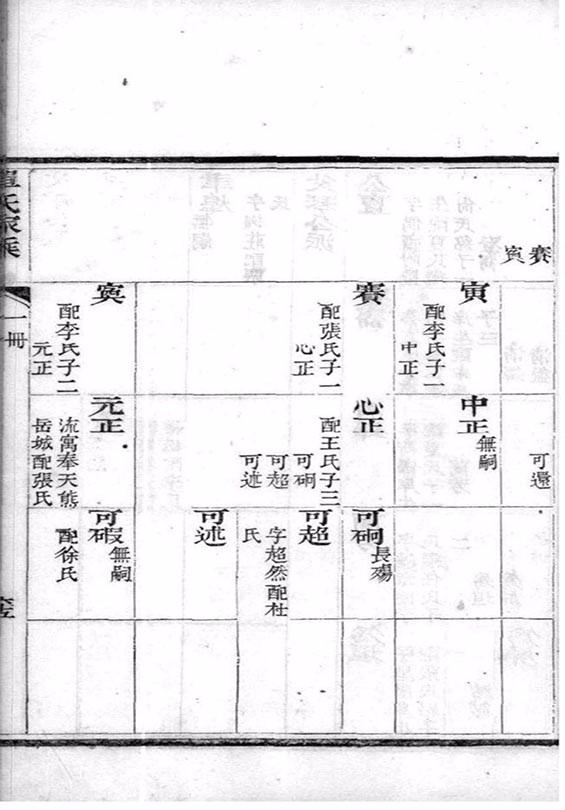 賽
可還
寅
配李氏子一
中正
中正
無嗣
賽
配張氏子一
心正
心正
配王氏子三
可硐
可超
可述
可硐
長殤
可超
字超然配杜
氏
可述
配李氏子二
元正
元正
流寓奉天熊
岳城配張氏
可碬
無嗣
配徐氏
氏家乘
一冊